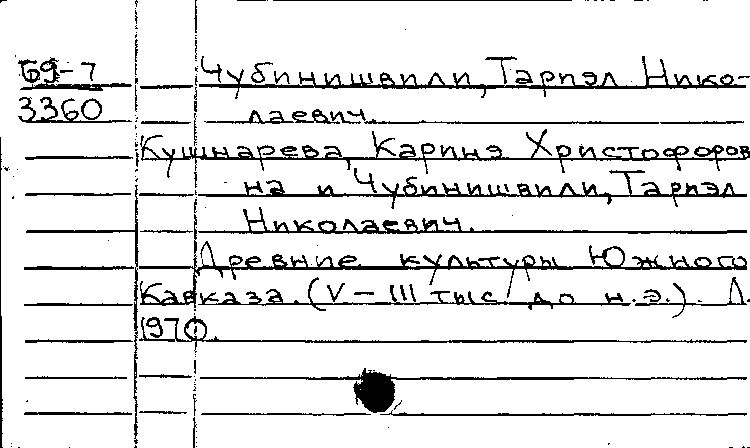 69-7 Чубинишвили, Тариэл Нико-
3360 лаевич.
Кушнарева, Каринэ Христофоров
на и Чубинишвили, Тариэл
Николаевич.
Древние культуры Южного
Кавказа. (V – III тыс. до н.э.). Л.
1970.